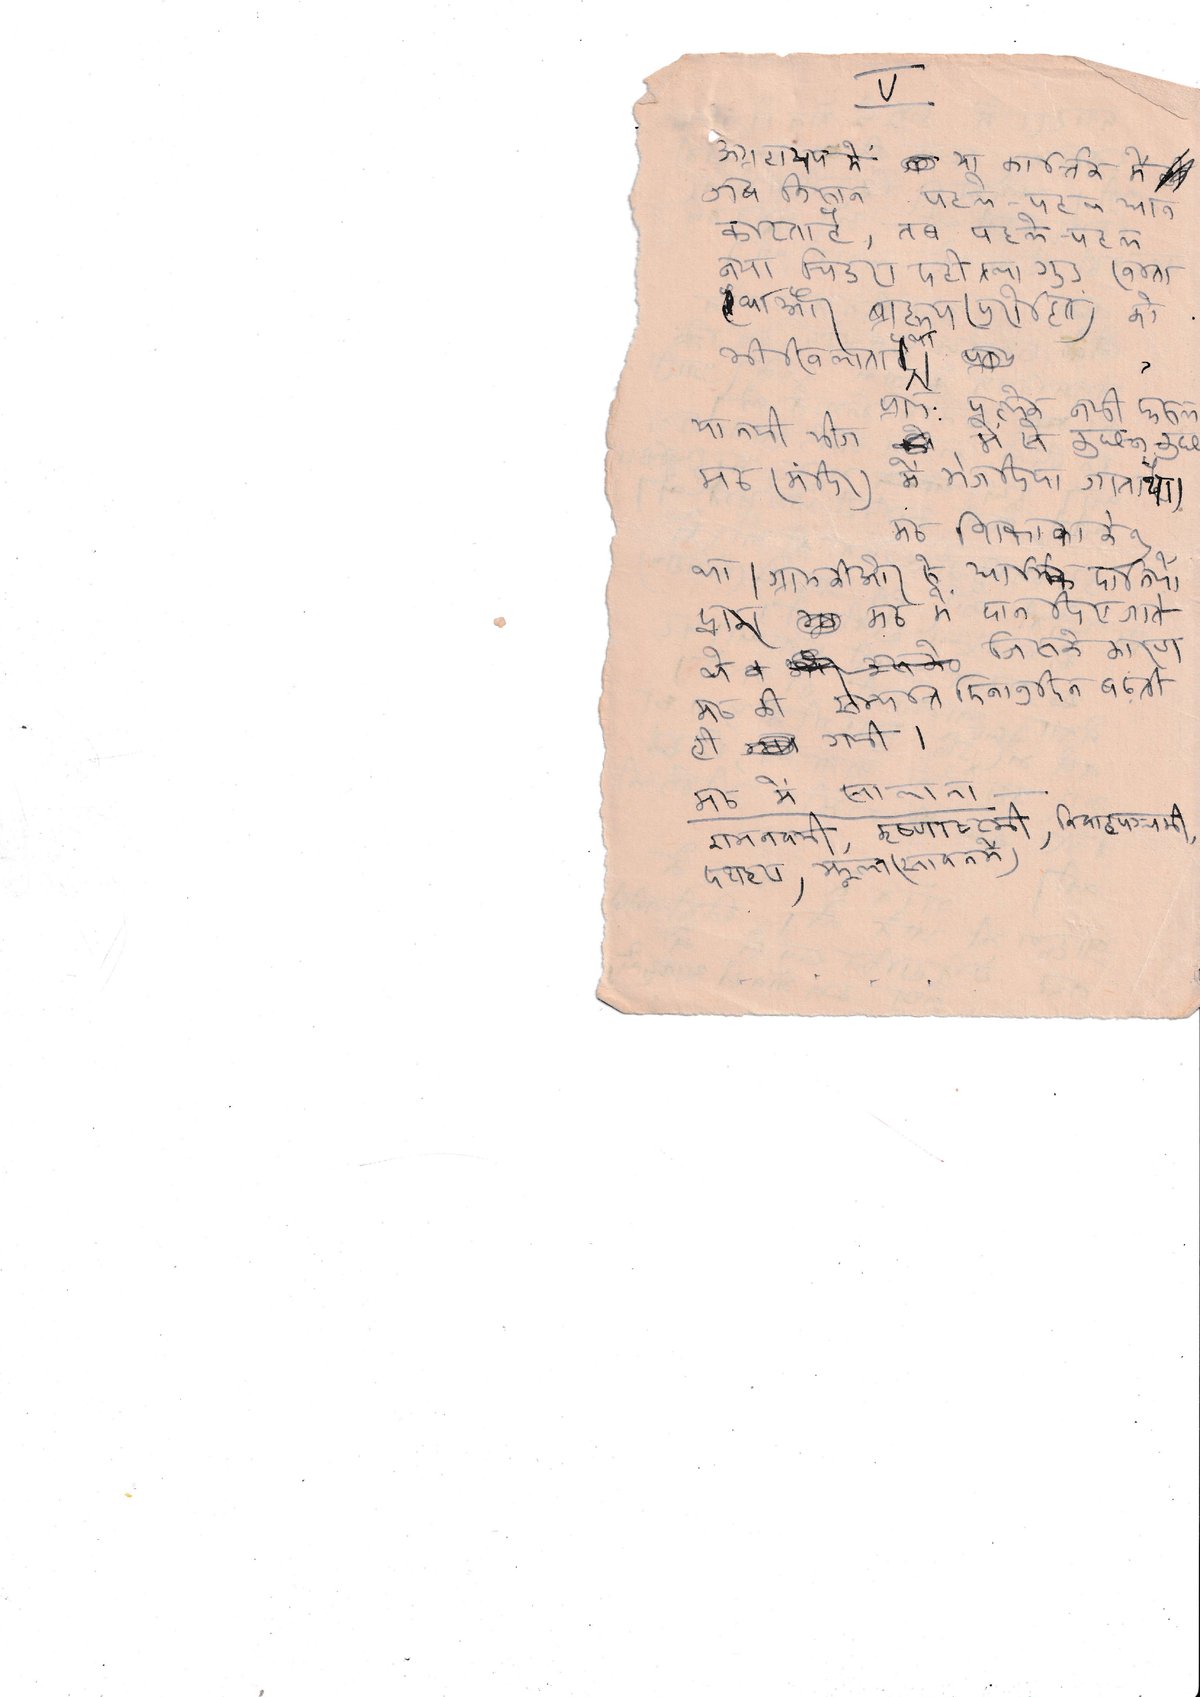 V
अग्रहायण में या कार्तिक में
जब किसान पहले-पहल धान
काटता है, तब पहले-पहल
नया चिउड़ा दही तथा गुड़ खाता
था और ब्राह्मण (पुरोहित) को
भी खिलाता था।
प्रायः प्रत्येक नयी फसल
या नयी चीज में से कुछ न कुछ
मठ (मंदिर) में भेज दिया जाता था।
मठ शिक्षा का केन्द्र
था। ग्रामकी ओर से धार्मिक दानियों
द्वारा मठ में दान दिए जाते
थे व जिसके कारण
मठ की सम्पत्ति दिनानुदिन बढ़ती
ही गयी।
मठ में सालाना
रामनवमी, कृष्णाष्टमी, विवाहपञ्चमी,
दशहरा, झूला (सावन में)